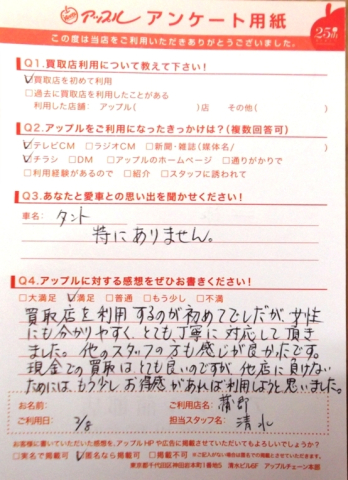 アップル アンケート用紙
25th
この度は当店をご利用いただきありがとうございました。
Q1.買取店利用について教えて下さい!
☑買取店を初めて利用
□過去に買取店を利用したことがある
利用した店舗: アップル( )店 その他( )
Q2.アップルをご利用になったきっかけは?(複数回答可)
☑テレビCM □ラジオCM □新聞・雑誌(媒体名/ )
☑チラシ □DM □アップルのホームページ □通りがかりで
□利用経験があるので □紹介 □スタッフに誘われて
Q3.あなたと愛車との思い出を聞かせください!
車名: タント
特にありません。
Q4.アップルに対する感想をぜひお書きください!
□大満足 ☑満足 □普通 □もう少し □不満
買取店を利用するのが初めてでしたが、女性
にも分かりやすく、とても丁寧に対応して頂き
ました。他のスタッフの方も感じが良かったです。
現金での買取はとても良いのですが、他店に負けない
ためには、もう少しお得感があれば利用しようと思いました。
お名前: ご利用店名: 蒲郡
ご利用日: 3/8 担当スタッフ名: 清水
お客様に書いていただいた感想を、アップルHPや広告に掲載させていただいてもよろしいでしょうか?
□実名で掲載可 ☑匿名なら掲載可 □掲載不可 ※ご記入がない場合は匿名での掲載とさせていただきます。
東京都千代田区神田岩本町1番地5 清水ビル6F アップルチェーン本部